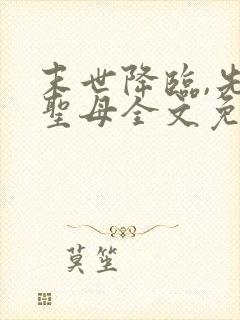 末世降臨,先
聖母全文免
莫笙